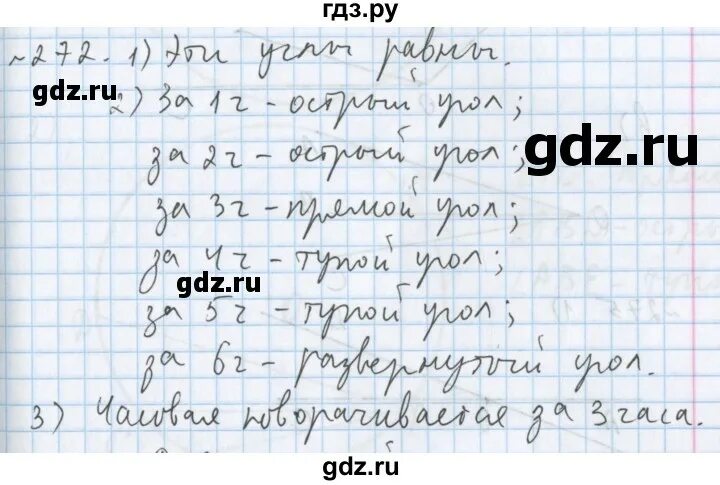 гдз.ру
№272. 1) Эти углы равны.
gdz.ru
2) За 1г - острый угол;
gdz.ru
за 2г - острый угол;
за 3г - прямой угол;
за 4г - тупой угол;
gdz.ru
за 5г - тупой угол;
за 6г - развернутый угол.
3) Часовая поворачивается за 3 часа.
gdz.ru